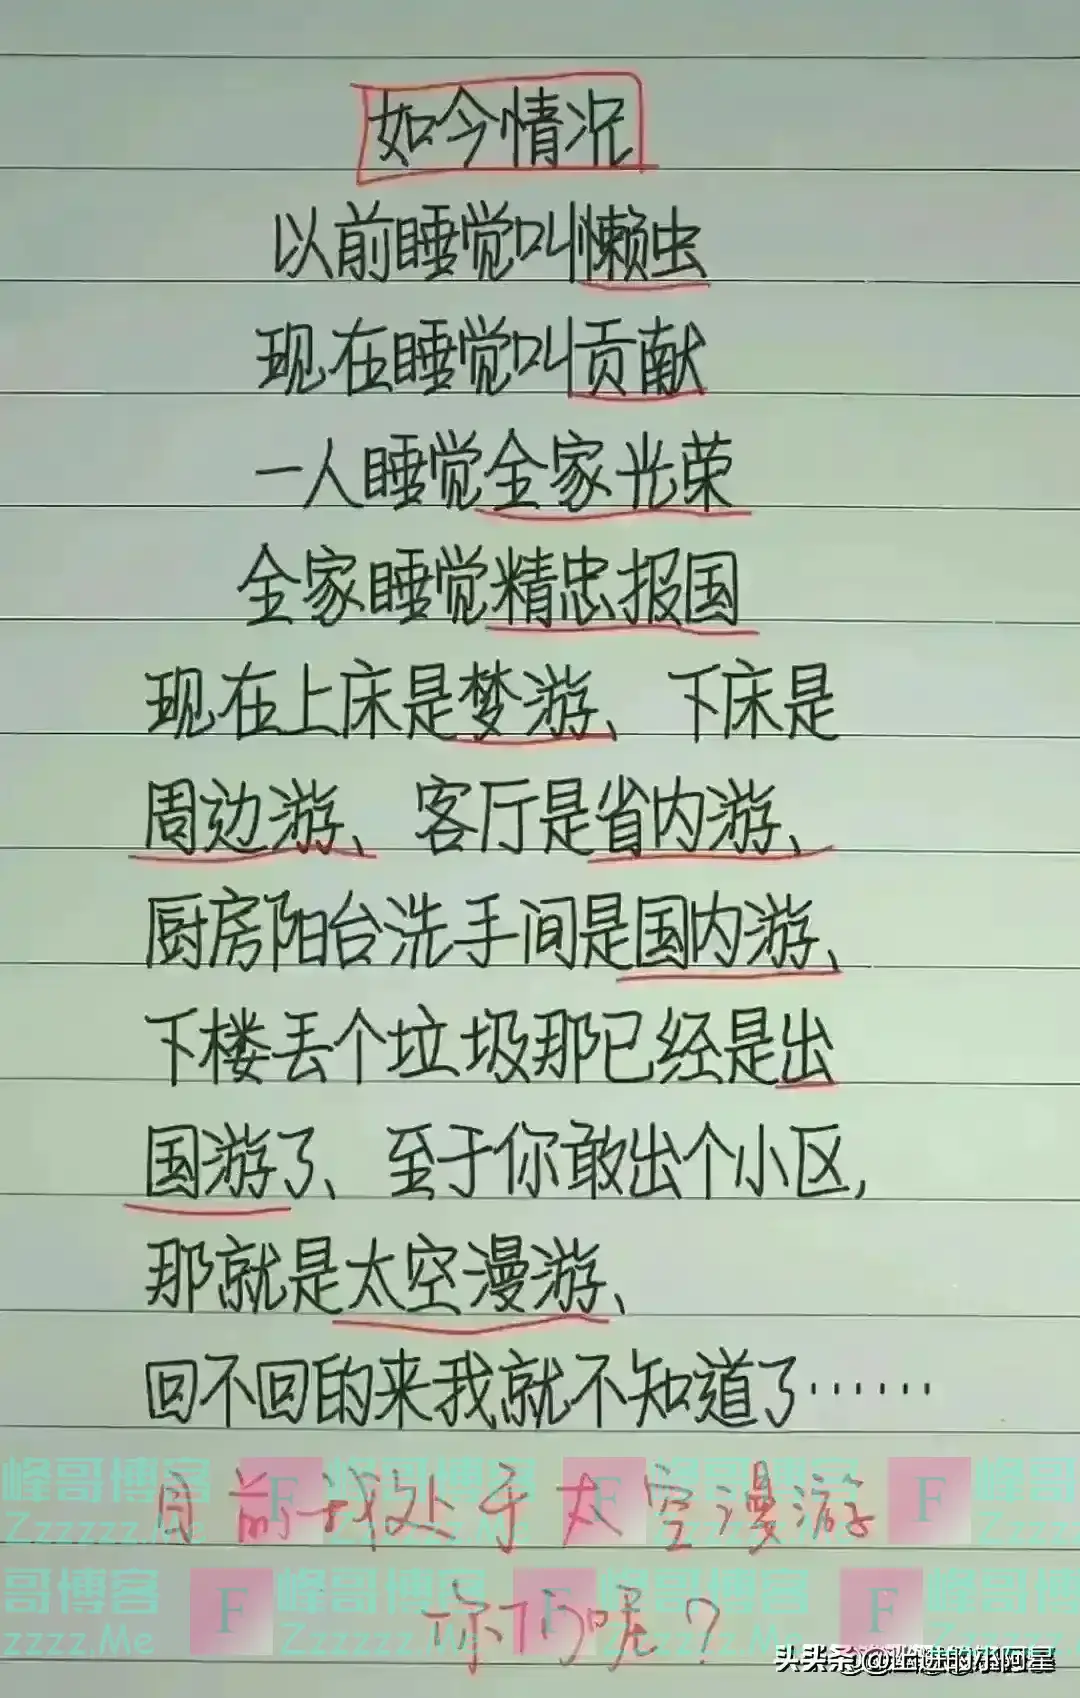 如今情况
以前睡觉叫懒虫
现在睡觉叫贡献
一人睡觉全家光荣
全家睡觉精忠报国
现在上床是梦游、下床是
周边游、客厅是省内游、
厨房阳台洗手间是国内游、
下楼丢个垃圾那已经是出
国游了、至于你敢出个小区,
那就是太空漫游、
回不回的来我就不知道了……
目前我处于太空漫游
你们呢?
峰哥博客
Zzzzzz.Me
F
峰哥博客
Zzzzzz.Me
头条@上进的小阿星